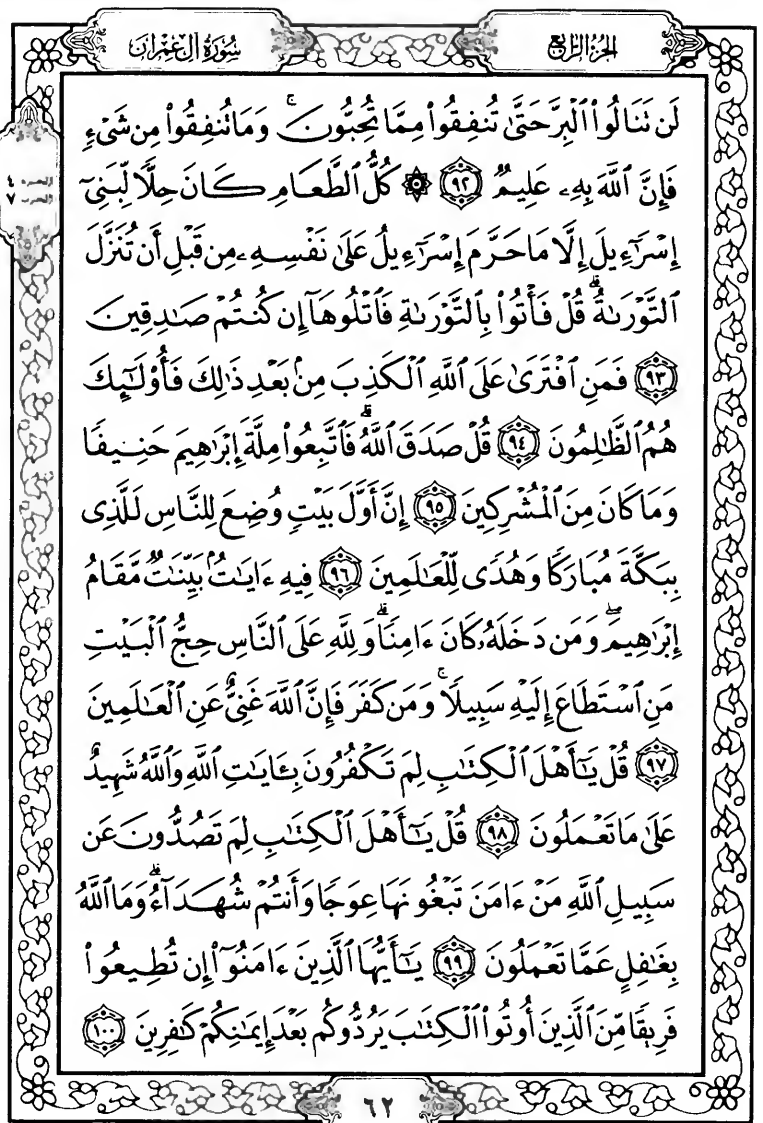 الجزء الرابع
سورة آل عمران
لَن تَنَالُوا۟ ٱلْبِرَّ حَتَّىٰ تُنفِقُوا۟ مِمَّا تُحِبُّونَ ۚ وَمَا تُنفِقُوا۟ مِن شَىْءٍ
فَإِنَّ ٱللَّهَ بِهِۦ عَلِيمٌ ٩٢ ۞ كُلُّ ٱلطَّعَامِ كَانَ حِلًّا لِّبَنِىٓ
إِسْرَٰٓءِيلَ إِلَّا مَا حَرَّمَ إِسْرَٰٓءِيلُ عَلَىٰ نَفْسِهِۦ مِن قَبْلِ أَن تُنَزَّلَ
ٱلتَّوْرَىٰةُ ۗ قُلْ فَأْتُوا۟ بِٱلتَّوْرَىٰةِ فَٱتْلُوهَآ إِن كُنتُمْ صَٰدِقِينَ
٩٣ فَمَنِ ٱفْتَرَىٰ عَلَى ٱللَّهِ ٱلْكَذِبَ مِنۢ بَعْدِ ذَٰلِكَ فَأُو۟لَٰٓئِكَ
هُمُ ٱلظَّٰلِمُونَ ٩٤ قُلْ صَدَقَ ٱللَّهُ ۗ فَٱتَّبِعُوا۟ مِلَّةَ إِبْرَٰهِيمَ حَنِيفًا
وَمَا كَانَ مِنَ ٱلْمُشْرِكِينَ ٩٥ إِنَّ أَوَّلَ بَيْتٍ وُضِعَ لِلنَّاسِ لَلَّذِى
بِبَكَّةَ مُبَارَكًا وَهُدًى لِّلْعَٰلَمِينَ ٩٦ فِيهِ ءَايَٰتٌۢ بَيِّنَٰتٌ مَّقَامُ
إِبْرَٰهِيمَ ۖ وَمَن دَخَلَهُۥ كَانَ ءَامِنًا ۗ وَلِلَّهِ عَلَى ٱلنَّاسِ حِجُّ ٱلْبَيْتِ
مَنِ ٱسْتَطَاعَ إِلَيْهِ سَبِيلًا ۚ وَمَن كَفَرَ فَإِنَّ ٱللَّهَ غَنِىٌّ عَنِ ٱلْعَٰلَمِينَ
٩٧ قُلْ يَٰٓأَهْلَ ٱلْكِتَٰبِ لِمَ تَكْفُرُونَ بِـَٔايَٰتِ ٱللَّهِ وَٱللَّهُ شَهِيدٌ
عَلَىٰ مَا تَعْمَلُونَ ٩٨ قُلْ يَٰٓأَهْلَ ٱلْكِتَٰبِ لِمَ تَصُدُّونَ عَن
سَبِيلِ ٱللَّهِ مَنْ ءَامَنَ تَبْغُونَهَا عِوَجًا وَأَنتُمْ شُهَدَآءُ ۗ وَمَا ٱللَّهُ
بِغَٰفِلٍ عَمَّا تَعْمَلُونَ ٩٩ يَٰٓأَيُّهَا ٱلَّذِينَ ءَامَنُوٓا۟ إِن تُطِيعُوا۟
فَرِيقًا مِّنَ ٱلَّذِينَ أُوتُوا۟ ٱلْكِتَٰبَ يَرُدُّوكُم بَعْدَ إِيمَٰنِكُمْ كَٰفِرِينَ ١٠٠
٤
٧
٦٢